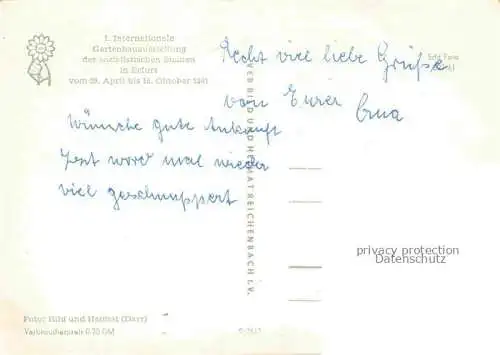 1. Internationale
Gartenbauausstellung
der sozialistischen Staaten
in Erfurt
vom 28. April bis 15. Oktober 1961
Recht viel liebe Grüße
von Eurer Erna
Wünsche gute Ankunft
Jest word mal wieder
viel geschnuppert
VER BILD UND HEIMAT REICHENBACH I. V.
privacy protection
Datenschutz
Foto: Bild und Heimat (Darr)
Verbraucherpreis 0,20 DM